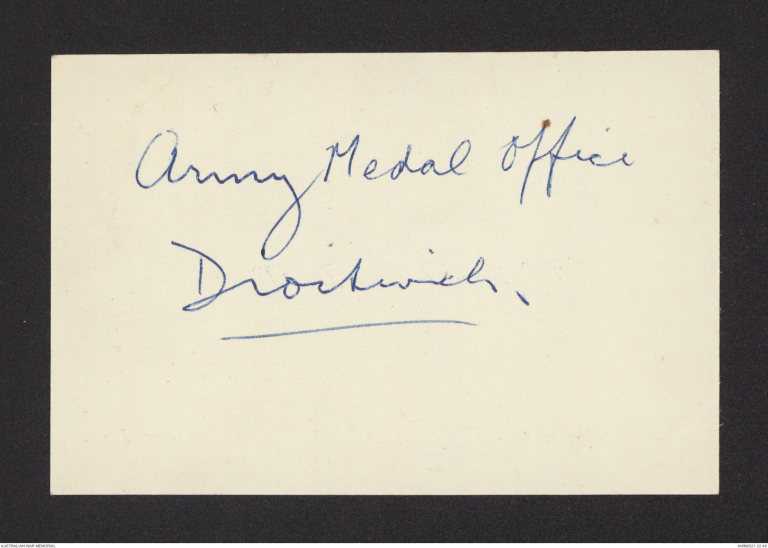 Army Medal Office
Droitwich.
AUSTRALIAN WAR MEMORIAL